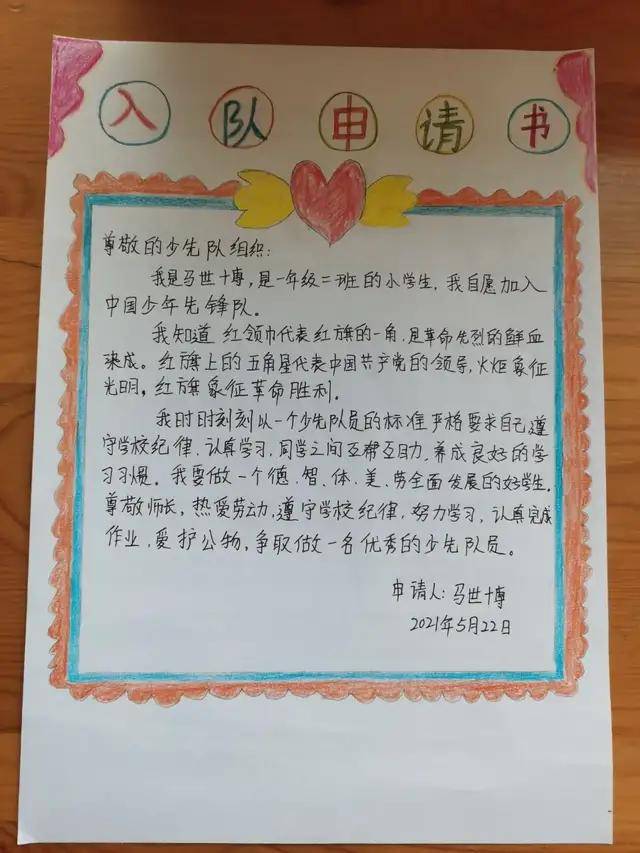 入队申请书
尊敬的少先队组织:
我是马世博,是一年级二班的小学生,我自愿加入
中国少年先锋队。
我知道 红领巾代表红旗的一角,是革命先烈的鲜血
染成。红旗上的五角星代表中国共产党的领导,火炬象征
光明,红旗象征革命胜利。
我时时刻刻以一个少先队员的标准严格要求自己遵
守学校纪律、认真学习,同学之间互帮互助、养成良好的学
习习惯。我要做一个德、智、体、美、劳全面发展的好学生。
尊敬师长,热爱劳动,遵守学校纪律,努力学习,认真完成
作业,爱护公物,争取做一名优秀的少先队员。
申请人:马世博
2021年5月22日